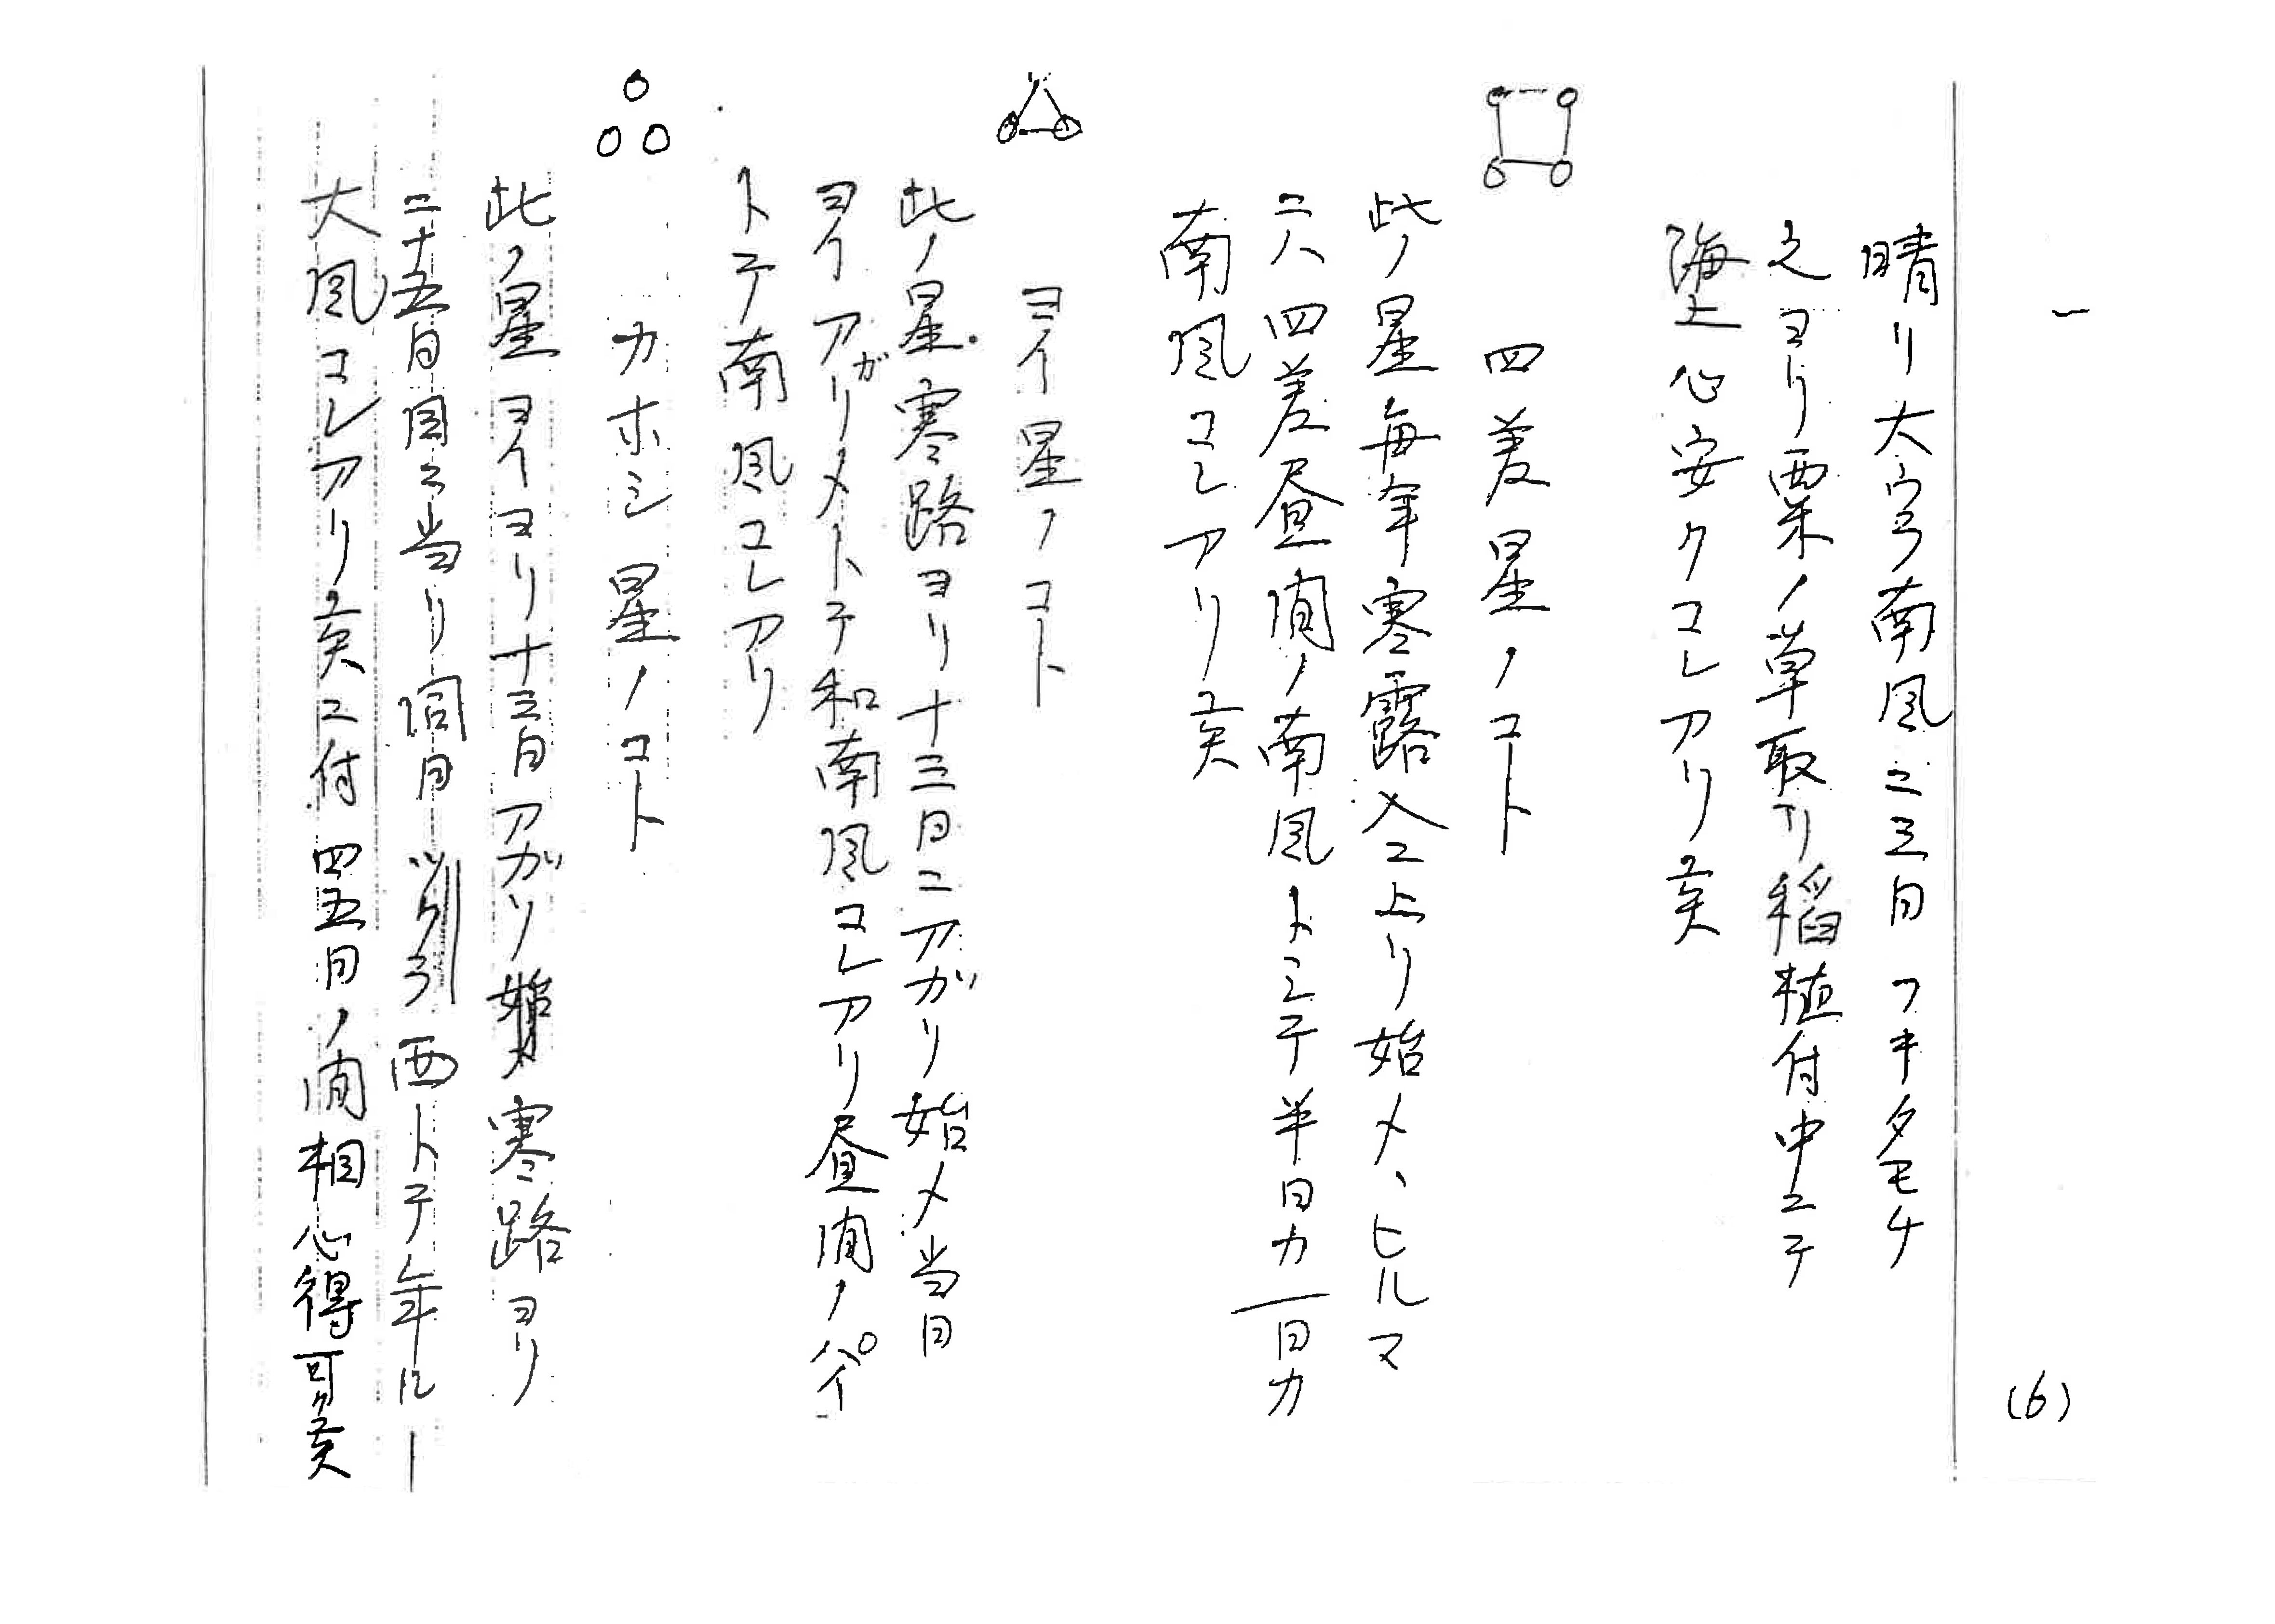 一
(6)
晴リ大ウラ南風二三日フキタモチ
之ヨリ粟ノ草取リ稲植付中ニテ
海上心安クコレアリ候
四差星ノコト
此ノ星毎年寒露入ニ上リ始メ、ヒルマ
ニハ四差昼間ノ南風トシテ半日カ一日カ
南風コレアリ候
ヨイ星ノコト
此ノ星寒路ヨリ十三日ニアガリ始メ当日
ヨイアガリメトテ和南風コレアリ昼間ノパイ
トテ南風コレアリ
カホシ星ノコト
此ノ星ヨイヨリ十三日アガリ始メ寒路ヨリ
二十五日目ニ当リ同日 西トテ年ニ
大風コレアリ候ニ付四五日ノ間相心得可ク候